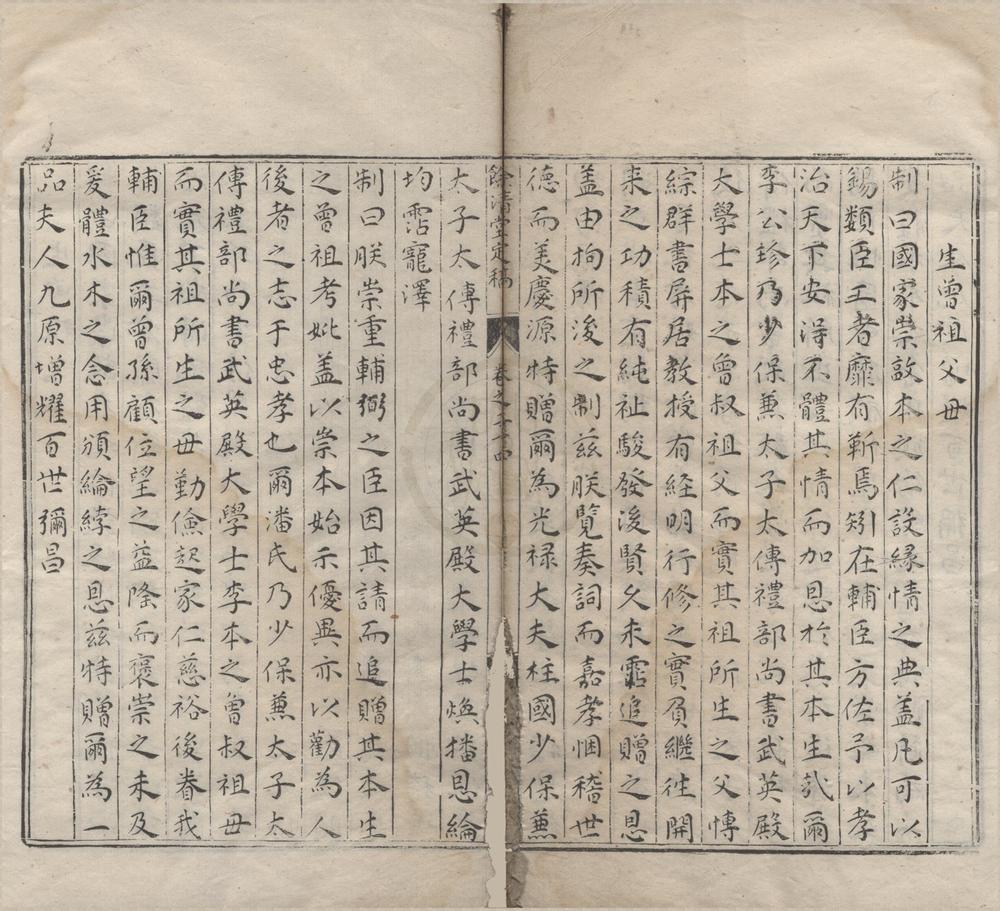 生曾祖父母
制曰國家崇敦本之仁設緣情之典盖凡可以
錫類臣工者靡有靳焉矧在輔臣方佐予以孝
治天下安得不體其情而加恩於其本生㢤爾
李公珍乃少保兼太子太傅禮部尚書武英殿
大學士本之曾叔祖父而實其祖所生之父博
綜群書屏居教授有經明行修之實負繼徃開
来之功積有純祉駿發後賢久未霑追贈之恩
盖由拘所後之制兹朕覽奏詞而嘉孝悃稽世
德而美慶源特贈爾為光禄大夫柱國少保兼
餘清堂定稿 卷之二十四
太子太傅禮部尚書武英殿大學士煥播恩綸
均霑寵澤
制曰朕崇重輔弼之臣因其請而追贈其本生
之曾祖考妣盖以崇本始示優異亦以勸為人
後者之志于忠孝也爾潘氏乃少保兼太子太
傅禮部尚書武英殿大學士李本之曾叔祖母
而實其祖所生之母勤儉起家仁慈裕後眷我
輔臣惟爾曾孫顧位望之益隆而褒崇之未及
爰體水木之念用頒綸綍之恩兹特贈爾為一
品夫人九原增耀百世彌昌